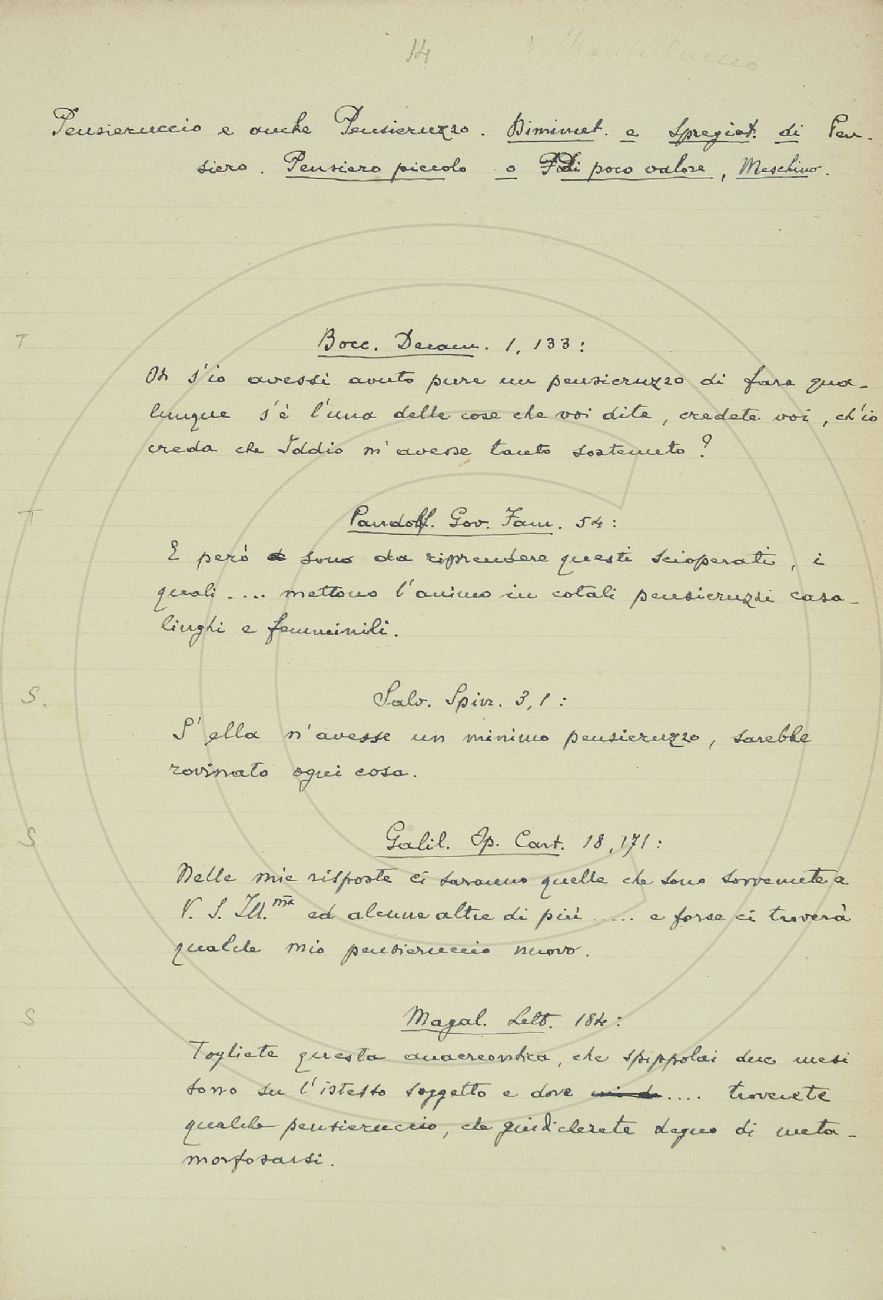 14
Pensieruccio e anche Pensieruzzo. Diminut. e Spregiat. di Pen-
siero. Pensiero piccolo o di poco valore, Meschino.
T
Bocc. Decam. 1, 133:
O s'io avessi avuto pure un pensieruzzo di fare qua-
lunque s'è l'una delle cose che voi dite, credete voi, ch'io
creda che Iddio m'avesse tanto sostenuto?
T
Pandolf. Gov. Fam. 54:
E però sono da riprendere questi scioperati, i
quali .... mettono l'animo in cotali pensieruzzi casa-
linghi e femminili.
S.
Salv. Spin. 3, 1:
S'ella n'avesse un minimo pensieruzzo, sarebbe
rovinato ogni cosa.
S
Galil. Op. Cart. 18, 171:
Nelle mie risposte ci saranno quelle che sono sovvenute a
V. S. Ill.ma ed alcune altre di più ..... e forse ci troverà
qualche mio pensieruccio nuovo.
S
Magal. Lett. 184:
Togliete questa anacreontica, che spippolai due mesi
sono su l'istesso soggetto e dove .... troverete
qualche pensieruccio, che giudicherete degno di meta-
morfosarsi.